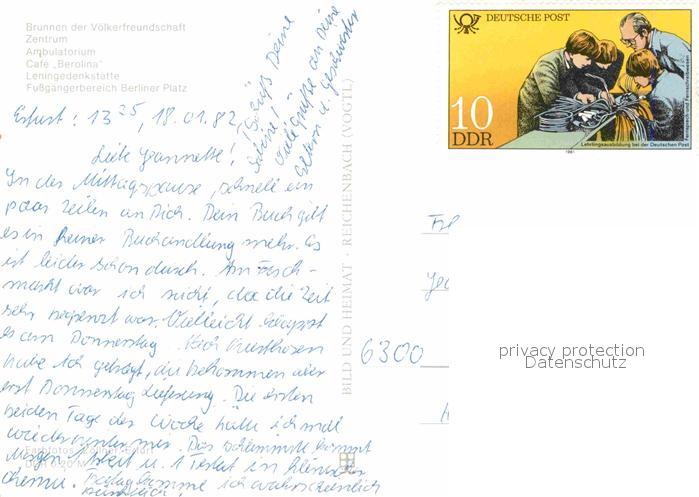 Brunnen der Völkerfreundschaft
Zentrum
Ambulatorium
Café „Berolina“
Leningedenkstätte
Fußgängerbereich Berliner Platz
Erfurt: 13²⁵, 18.01.82
Liebe Jeannette!
In der Mittagspause, schnell ein
paar Zeilen an Dich. Dein Buch gibt
es in keiner Buchhandlung mehr. Es
ist leider schon durch. Am
markt war ich nicht, da die Zeit
sehr begrenzt war. Vielleicht klappt
es am Donnerstag. Nach
habe ich gefragt, die bekommen aber
erst Donnerstag Lieferung. Die ersten
beiden Tage der Woche hätte ich mal
wieder hinter mir. Das schlimmste kommt
Morgen 1 Arbeit u. 1 Testat in klinischer
Chemie. Freitag komme ich wahrscheinlich
Tschüß Deine
Viele Grüße an Deine
Eltern u. Geschwister
BILD UND HEIMAT · REICHENBACH (VOGTL)
DEUTSCHE POST
10
DDR
Lehrlingsausbildung bei der Deutschen Post
1981
6300
privacy protection
Datenschutz